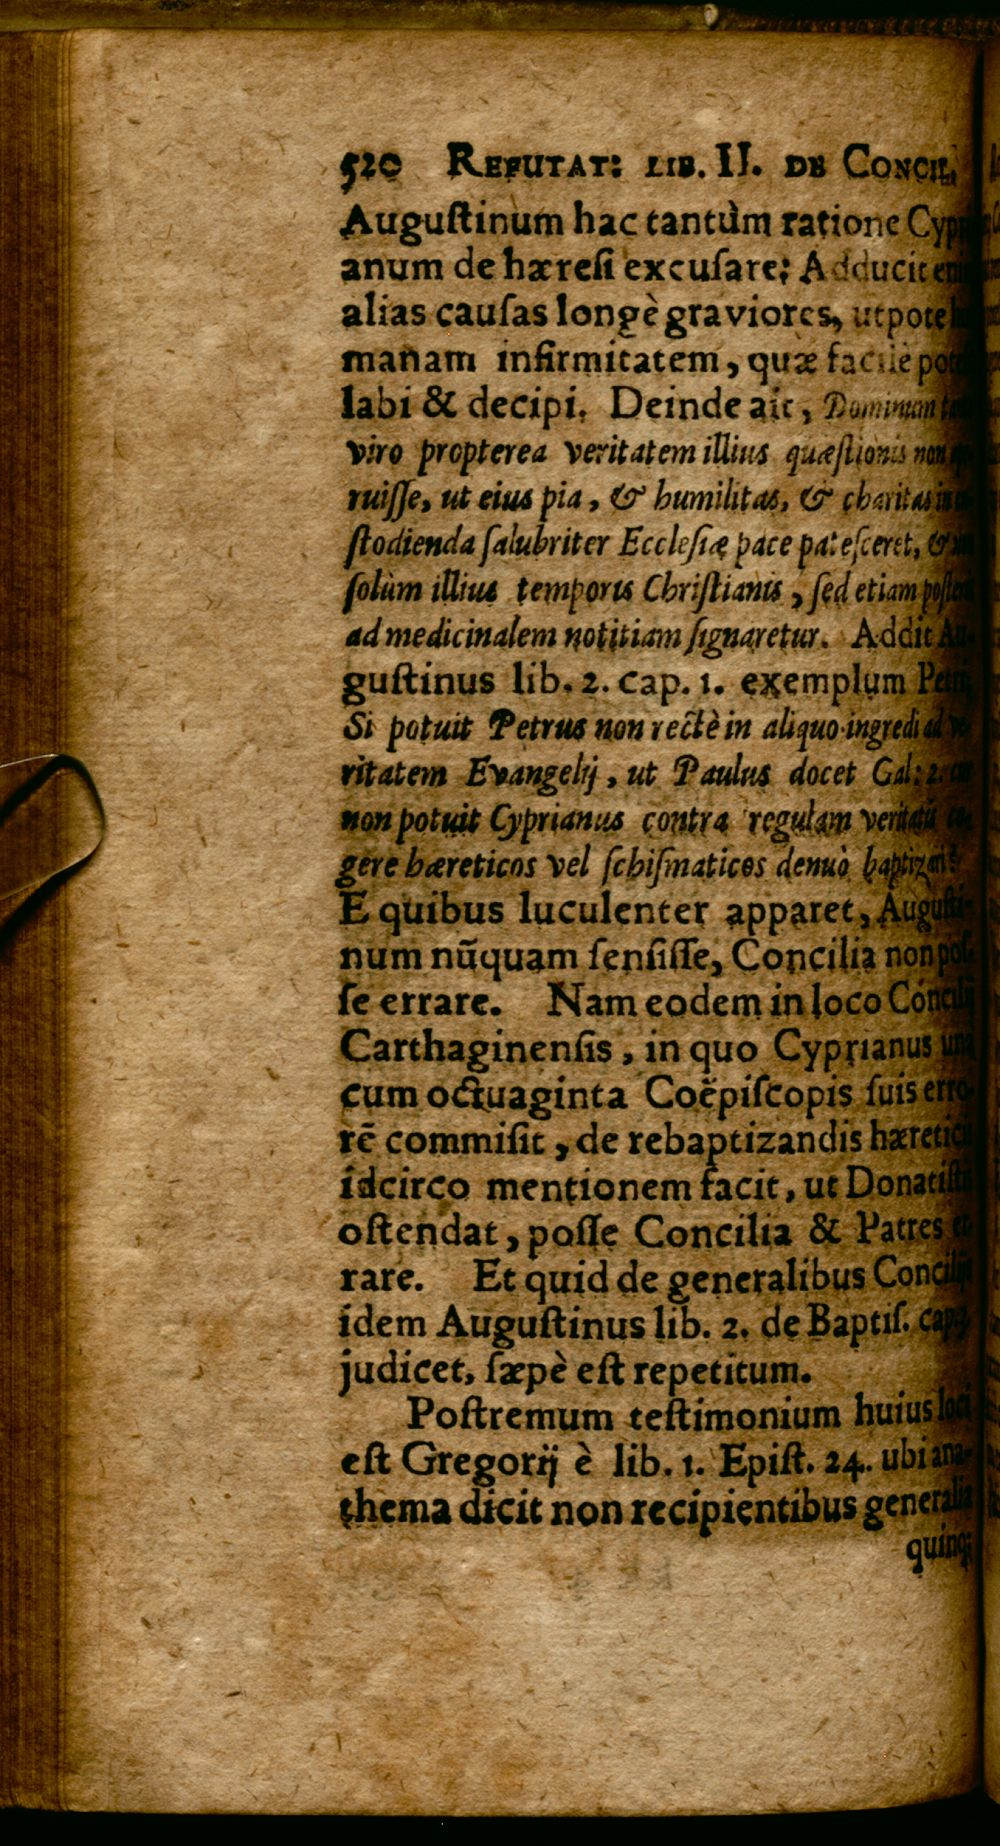 520 REFUTAT: LIB. II. DE CONCIL.
Auguſtinum hac tantùm ratione Cypp
anum de hæreſi excuſare; Adducit
alias cauſas longè graviores, utpote
manam infirmitatem, quæ facilè
labi & decipi. Deinde ait, Dominum
viro propterea veritatem illius quæſtionis non
ruiſſe, ut eius pia, & humilitas, & charitas in
ſtodienda ſalubriter Eccleſiæ pace pateſceret, &
ſolùm illius temporis Chriſtianis, ſed etiam
ad medicinalem notitiam ſignaretur. Addit Au-
guſtinus lib. 2. cap. 1. exemplum Petri;
Si potuit Petrus non rectè in aliquo ingredi ad ve-
ritatem Evangelij, ut Paulus docet Gal: 2. cur
non potuit Cyprianus contra regulam co-
gere hæreticos vel ſchiſmaticos denuò baptizari?
E quibus luculenter apparet, Auguſti-
num nũquam ſenſiſſe, Concilia non poſ-
ſe errare. Nam eodem in loco Concilij
Carthaginenſis, in quo Cyprianus una
cum octuaginta Coëpiſcopis ſuis erro-
rē commiſit, de rebaptizandis
idcirco mentionem facit, ut
oſtendat, poſſe Concilia & Patres er-
rare. Et quid de generalibus Concilijs
idem Auguſtinus lib. 2. de Baptiſ. cap. 3.
judicet, ſæpè eſt repetitum.
Poſtremum teſtimonium huius loci
eſt Gregorij è lib. 1. Epiſt. 24. ubi ana-
thema dicit non recipientibus generalia
quinq;